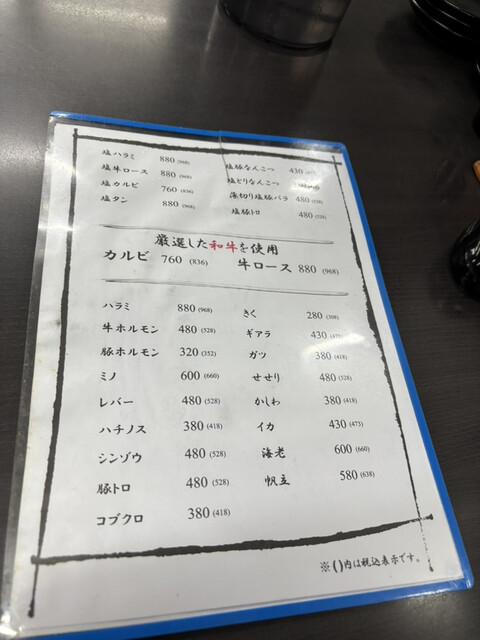 塩ハラミ 880 (968)
塩牛ロース 880 (968)
塩カルビ 760 (836)
塩タン 880 (968)
塩豚なんこつ 430
塩とりなんこつ
薄切り塩豚バラ 480 (528)
塩豚トロ 480 (528)
厳選した和牛を使用
カルビ 760 (836) 牛ロース 880 (968)
ハラミ 880 (968)
牛ホルモン 480 (528)
豚ホルモン 320 (352)
ミノ 600 (660)
レバー 480 (528)
ハチノス 380 (418)
シンゾウ 480 (528)
豚トロ 480 (528)
コブクロ 380 (418)
きく 280 (308)
ギアラ 430 (473)
ガツ 380 (418)
せせり 480 (528)
かしわ 380 (418)
イカ 430 (473)
海老 600 (660)
帆立 580 (638)
※()内は税込表示です。